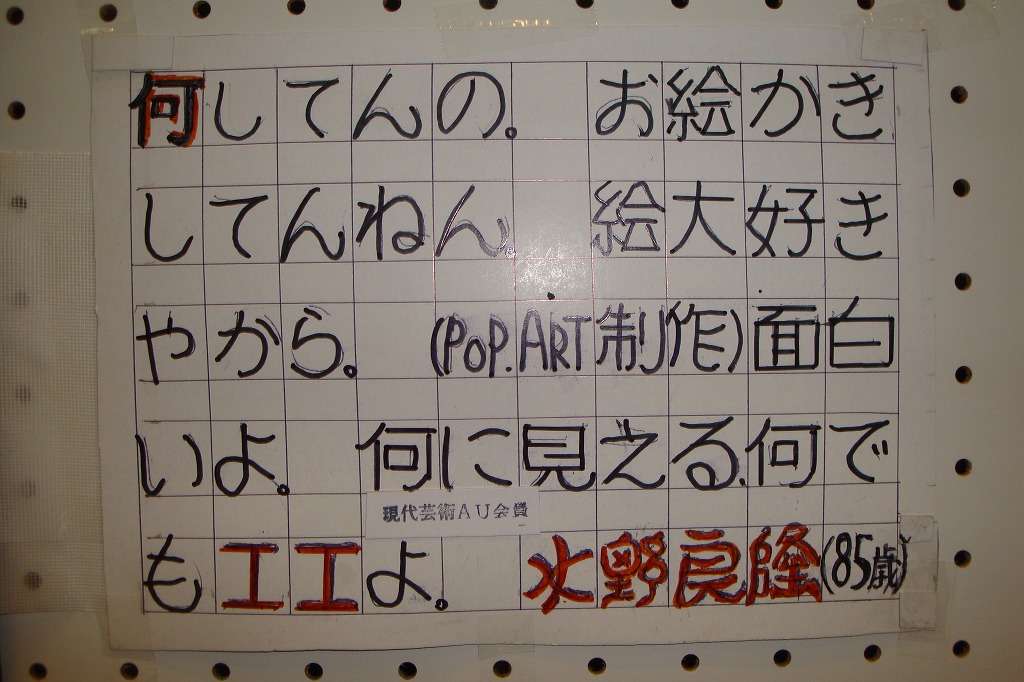 何してんの。 お絵かき
してんねん。 絵大好き
やから。 (POP.ART制作)面白
いよ。 何に見える、何で
現代芸術AU会員
もエエよ。 水野良隆(85歳)